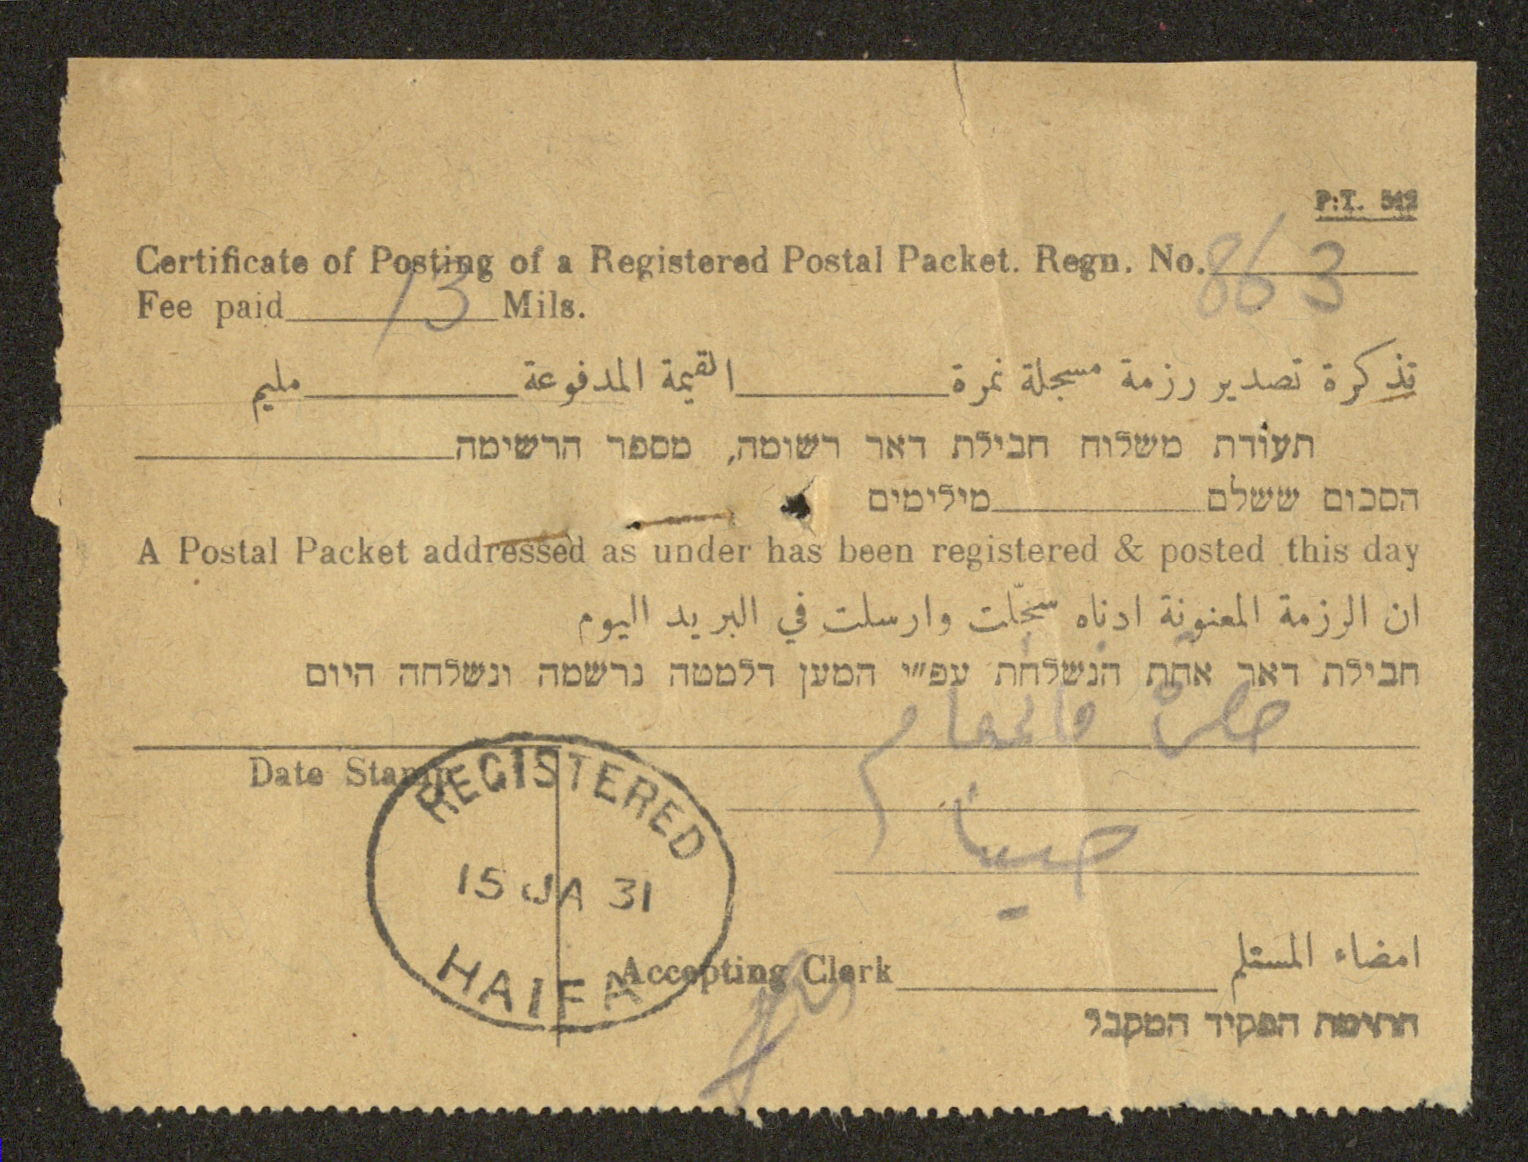 P.T. 542
Certificate of Posting of a Registered Postal Packet. Regn. No. 863
Fee paid 13 Mils.
تذكرة تصدير رزمة مسجلة نمرة القيمة المدفوعة مليم
תעודת משלוח חבילת דאר רשומה, מספר הרשימה
הסכום ששלם מילימים
A Postal Packet addressed as under has been registered & posted this day
ان الرزمة المعنونة ادناه سجّلت وارسلت في البريد اليوم
חבילת דאר אחת הנשלחת עפ״י המען דלמטה נרשמה ונשלחה היום
حضرة قائمقام
Date Stamp
REGISTERED
15 JA 31
HAIFA
Accepting Clerk امضاء المستلم
חתימת הפקיד המקבל